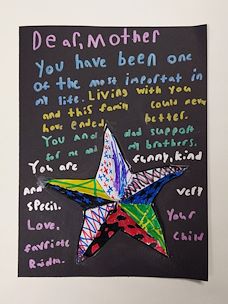 Dear, Mother
You have been one
of the most importat in
my life. Living with you
and this family could never
have ended better.
You and dad support
for me and my brothers.
You are funny, kind
and very
specil.
Love, Your
favriote child